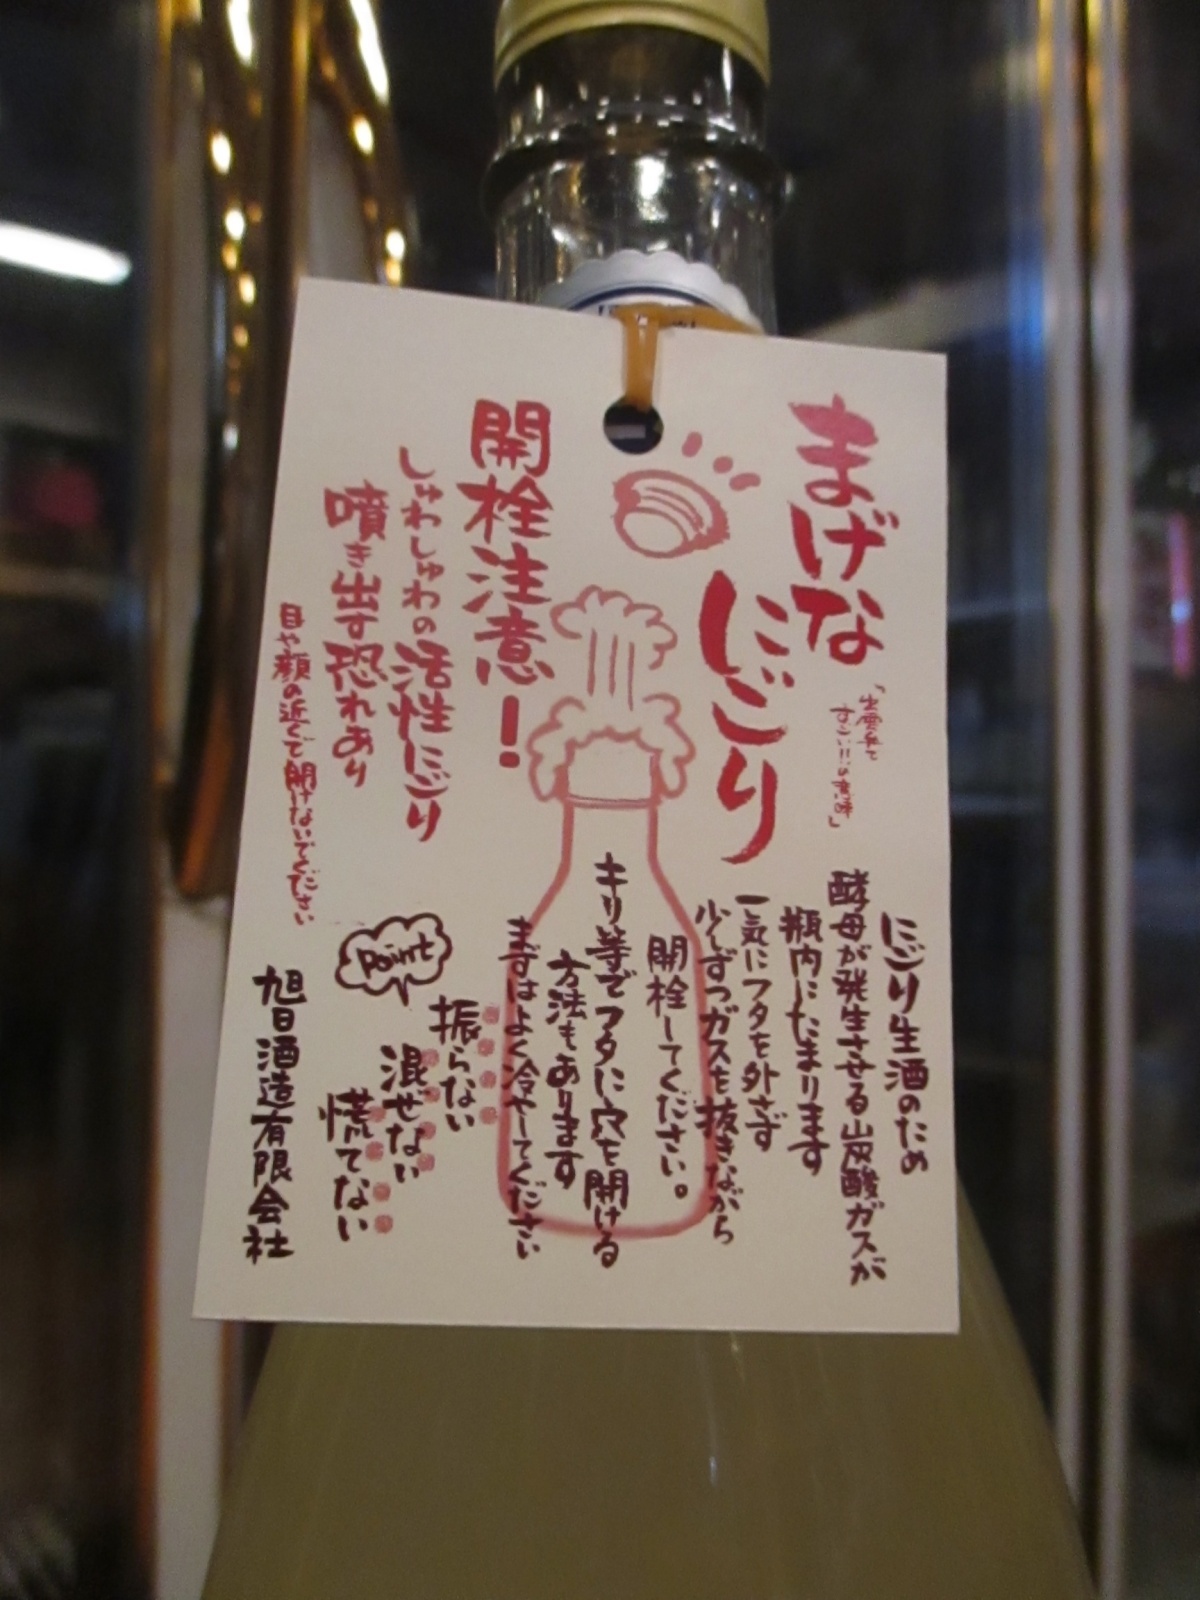 まげな
「出雲弁で
すごい!!の意味」
にごり
開栓注意!
しゅわしゅわの活性にごり
噴き出す恐れあり
目や顔の近くで開けないでください
にごり生酒のため
酵母が発生させる炭酸ガスが
瓶内にたまります
一気にフタを外さず
少しずつガスを抜きながら
開栓してください。
キリ等でフタに穴を開ける
方法もあります
まずはよく冷やしてください
Point
振らない
混ぜない
慌てない
旭日酒造有限会社